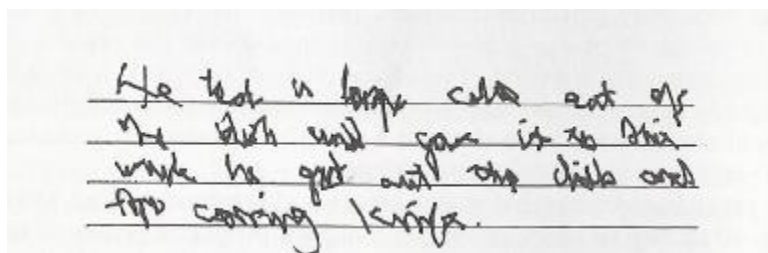 He took a large cake out of
the dish and gave it to this
while he got out the dish and
the carving knife.